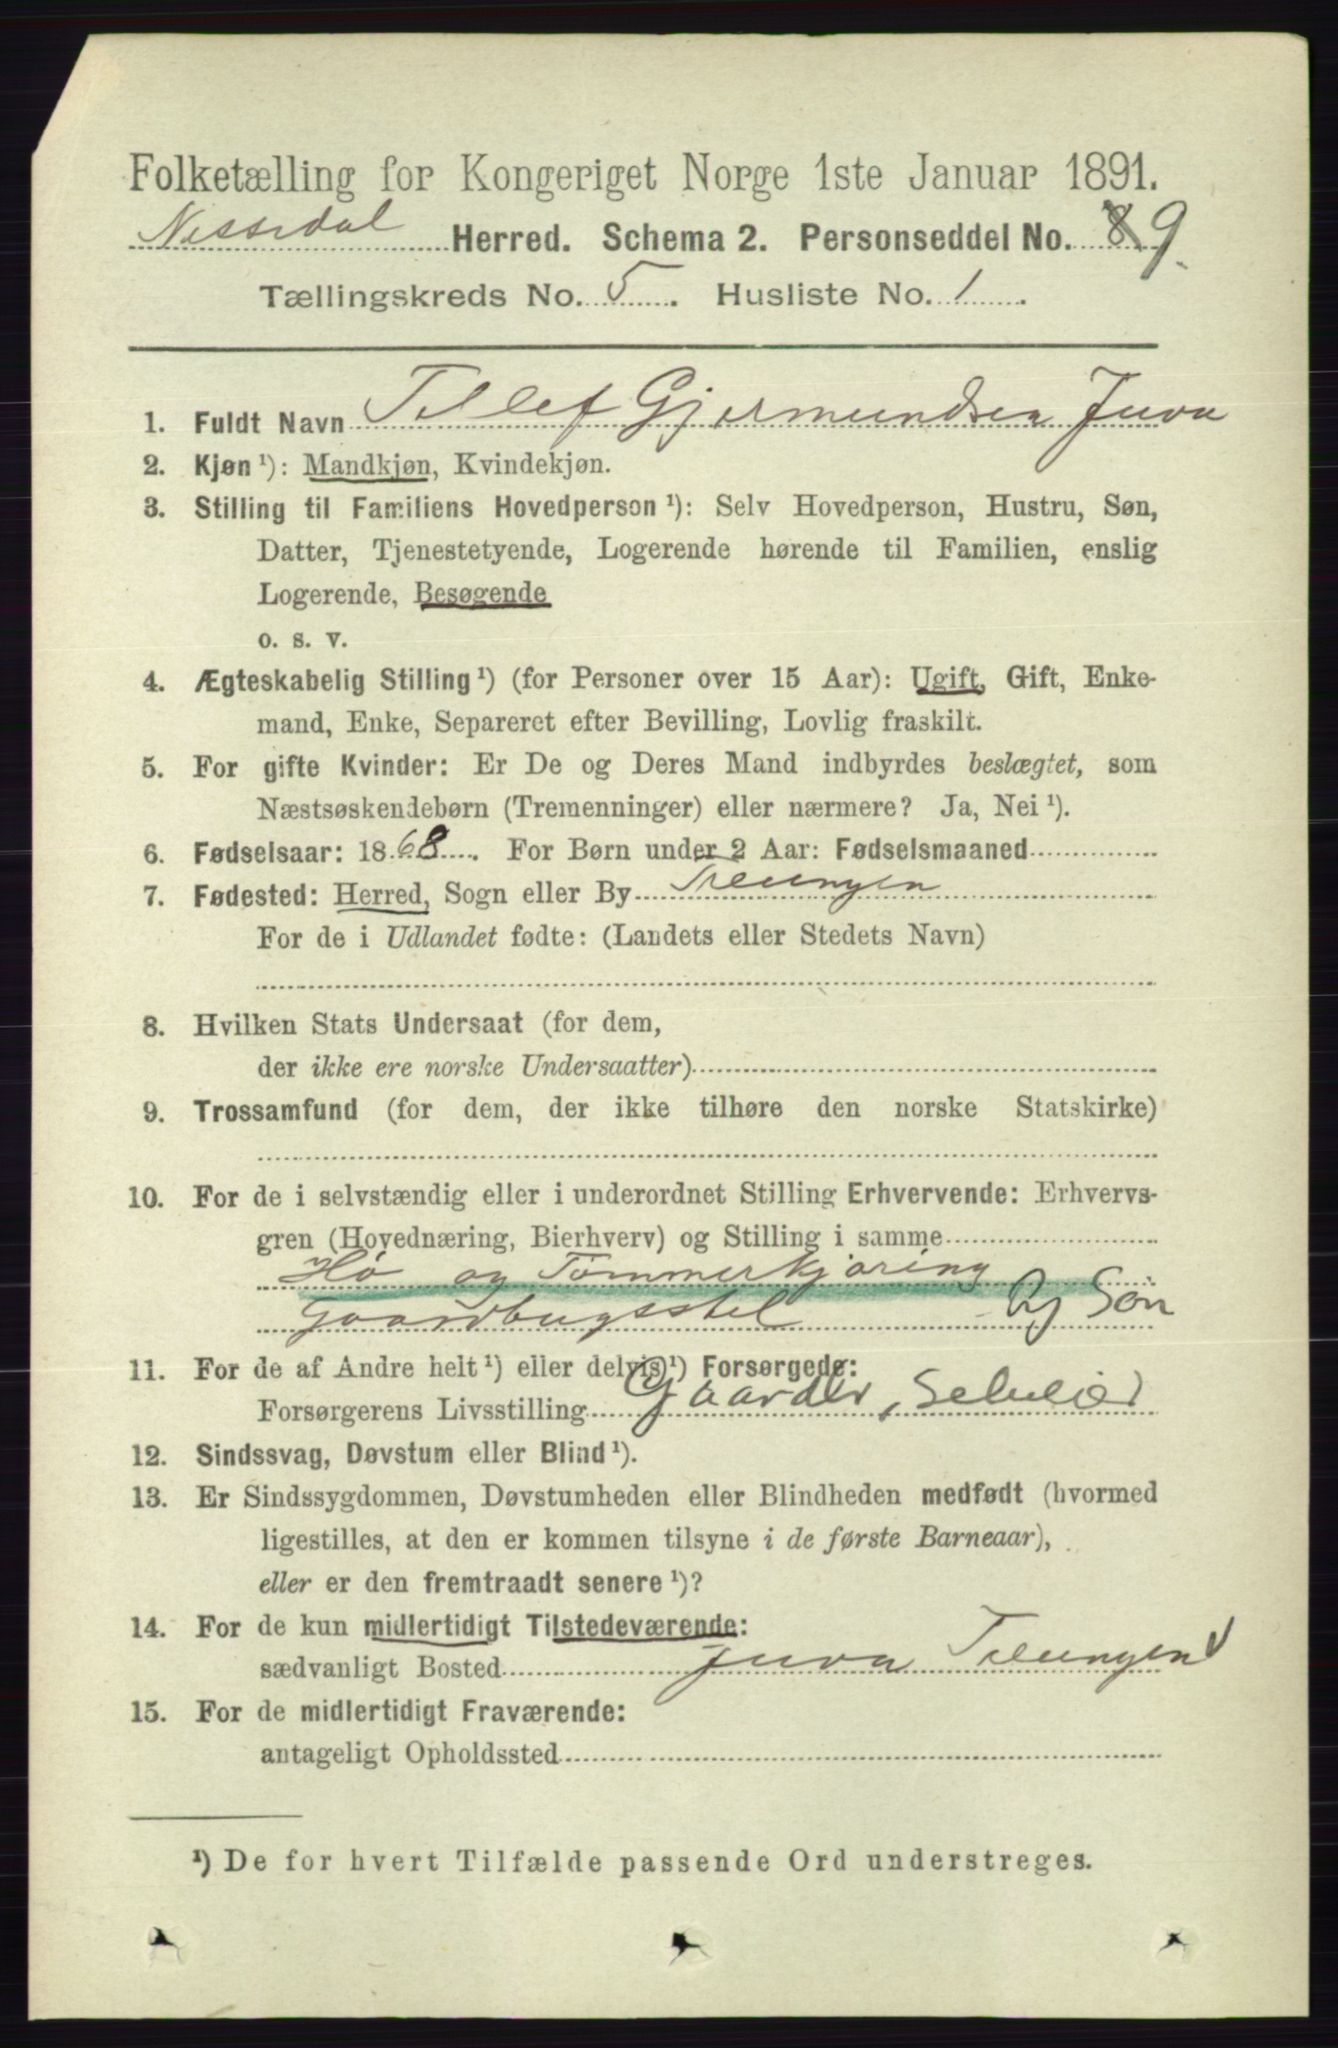 Folketælling for Kongeriget Norge 1ste Januar 1891.
Nissedal Herred. Schema 2. Personseddel No. 9.
Tællingskreds No. 5. Husliste No. 1.
1. Fuldt Navn Tellef Gjermundsen Juva
2. Kjøn ¹): Mandkjøn, Kvindekjøn.
3. Stilling til Familiens Hovedperson ¹): Selv Hovedperson, Hustru, Søn,
Datter, Tjenestetyende, Logerende hørende til Familien, enslig
Logerende, Besøgende
o. s. v.
4. Ægteskabelig Stilling ¹) (for Personer over 15 Aar): Ugift, Gift, Enke-
mand, Enke, Separeret efter Bevilling, Lovlig fraskilt.
5. For gifte Kvinder: Er De og Deres Mand indbyrdes beslægtet, som
Næstsøskendebørn (Tremenninger) eller nærmere? Ja, Nei ¹).
6. Fødselsaar: 1868. For Børn under 2 Aar: Fødselsmaaned
7. Fødested: Herred, Sogn eller By Treungen
For de i Udlandet fødte: (Landets eller Stedets Navn)
8. Hvilken Stats Undersaat (for dem,
der ikke ere norske Undersaatter)
9. Trossamfund (for dem, der ikke tilhøre den norske Statskirke)
10. For de i selvstændig eller i underordnet Stilling Erhvervende: Erhvervs-
gren (Hovednæring, Bierhverv) og Stilling i samme
Hö og Tömmerkjøring
Gaardbrugsstel Gj Sön
11. For de af Andre helt ¹) eller delvis ¹) Forsørgede:
Forsørgerens Livsstilling Gaardbr, Selveier
12. Sindssvag, Døvstum eller Blind ¹).
13. Er Sindssygdommen, Døvstumheden eller Blindheden medfødt (hvormed
ligestilles, at den er kommen tilsyne i de første Barneaar),
eller er den fremtraadt senere ¹)?
14. For de kun midlertidigt Tilstedeværende:
sædvanligt Bosted Juva Treungen
15. For de midlertidigt Fraværende:
antageligt Opholdssted
¹) De for hvert Tilfælde passende Ord understreges.